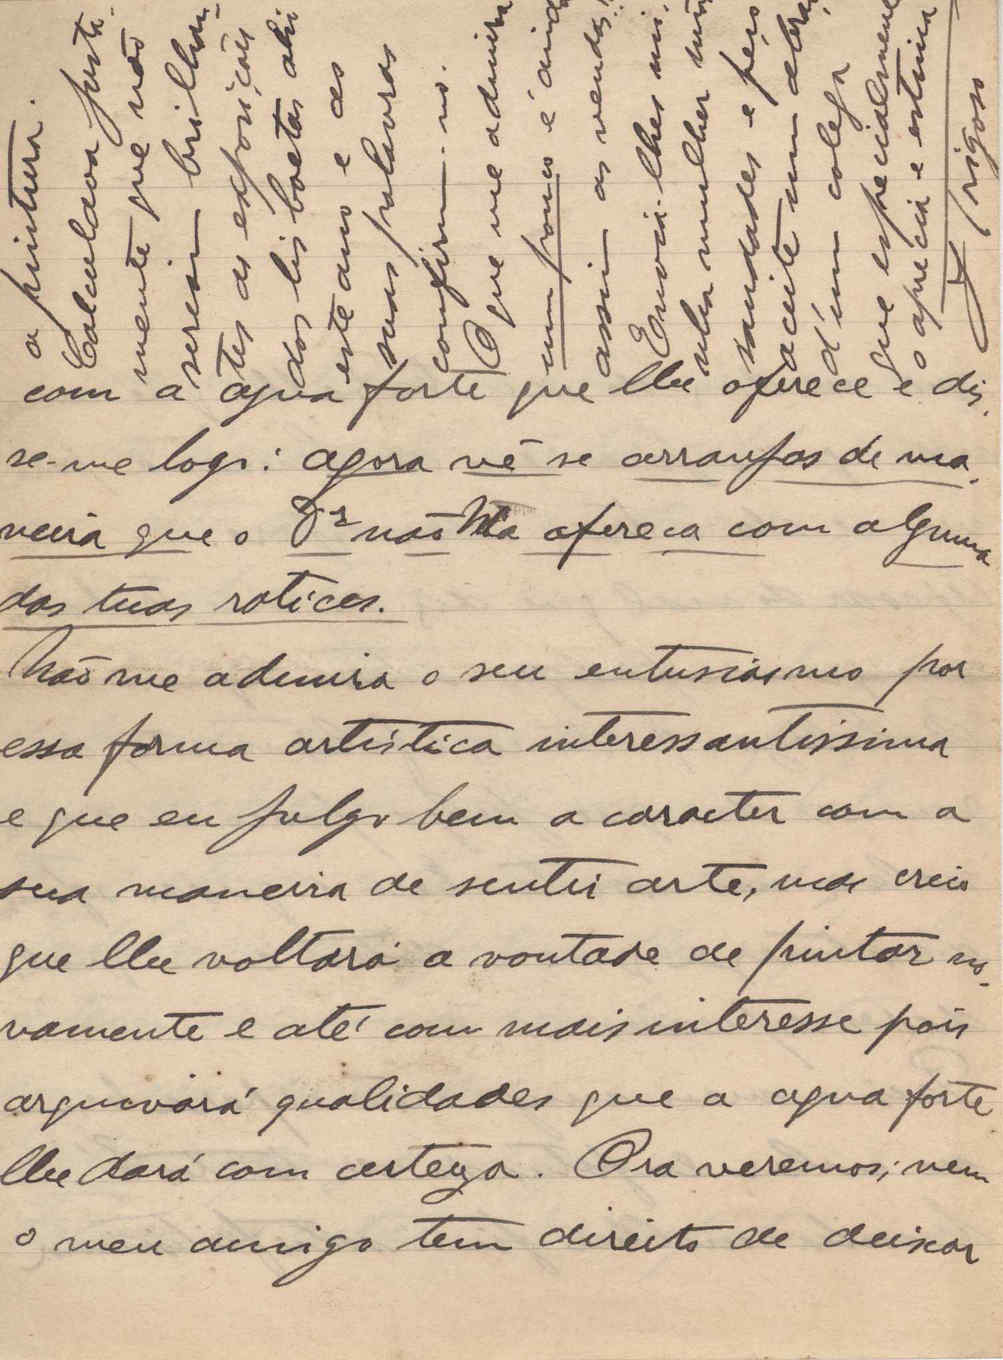 com a agua forte que lhe oferece e dis-
se-me logo: agora vê se arranjas de ma-
neira que o Dr não lha ofereça com alguma
das tuas ratices.
Não me admira o seu entusiasmo por
essa forma artística interessantissima
e que eu julgo bem a caracter com a
sua maneira de sentir arte, mas creio
que lhe voltará a vontade de pintar no-
vamente e até com mais interesse pois
arquivará qualidades que a agua forte
lhe dará com certeza. Ora veremos; nem
o meu amigo tem direito de deixar
a pintura.
Calculava justa-
mente que não
seriam brilhan-
tes as exposições
dos lisboetas ahi
este ano e as
suas palavras
confirm-no.
O que me admira
um pouco é ainda
assim as vendas!!
Envia-lhes mi-
nha mulher muitas
saudades e peço
aceite um abraço
d'um colega
que especialmente
o aprecia e estima